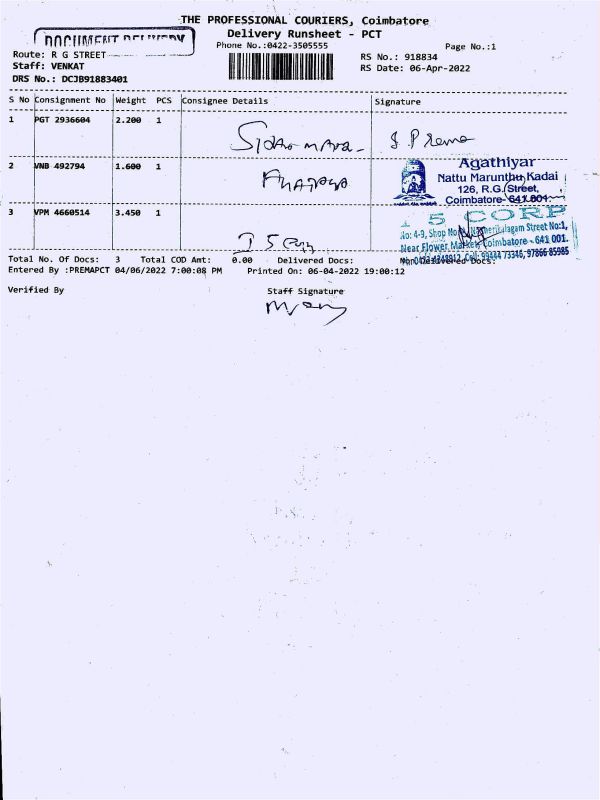 THE PROFESSIONAL COURIERS, Coimbatore
DOCUMENT DELIVERY
Delivery Runsheet - PCT
Phone No.:0422-3505555
Page No.:1
Route: R G STREET
RS No.: 918834
Staff: VENKAT
RS Date: 06-Apr-2022
DRS No.: DCJB91883401
S No Consignment No Weight PCS Consignee Details Signature
1 PGT 2936604 2.200 1
S Prema
2 VNB 492794 1.600 1
Agathiyar
Nattu Marunthu Kadai
126, R.G. Street,
Coimbatore- 641 001.
3 VPM 4660514 3.450 1
5 CORP
No: 4-9, Shop No
Street No:1,
Near Flower Market, Coimbatore - 641 001.
Cell: 99444 73346, 97866 85985
Total No. Of Docs: 3 Total COD Amt: 0.00 Delivered Docs:
Non Delivered Docs:
Entered By :PREMAPCT 04/06/2022 7:00:08 PM Printed On: 06-04-2022 19:00:12
Verified By Staff Signature